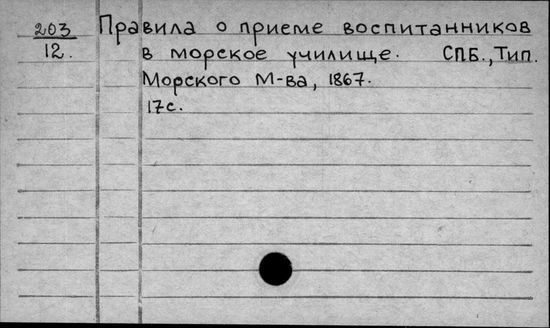 203 Правила о приеме воспитанников
12. в морское училище. СПБ., Тип.
Морского М-ва, 1867.
17с.